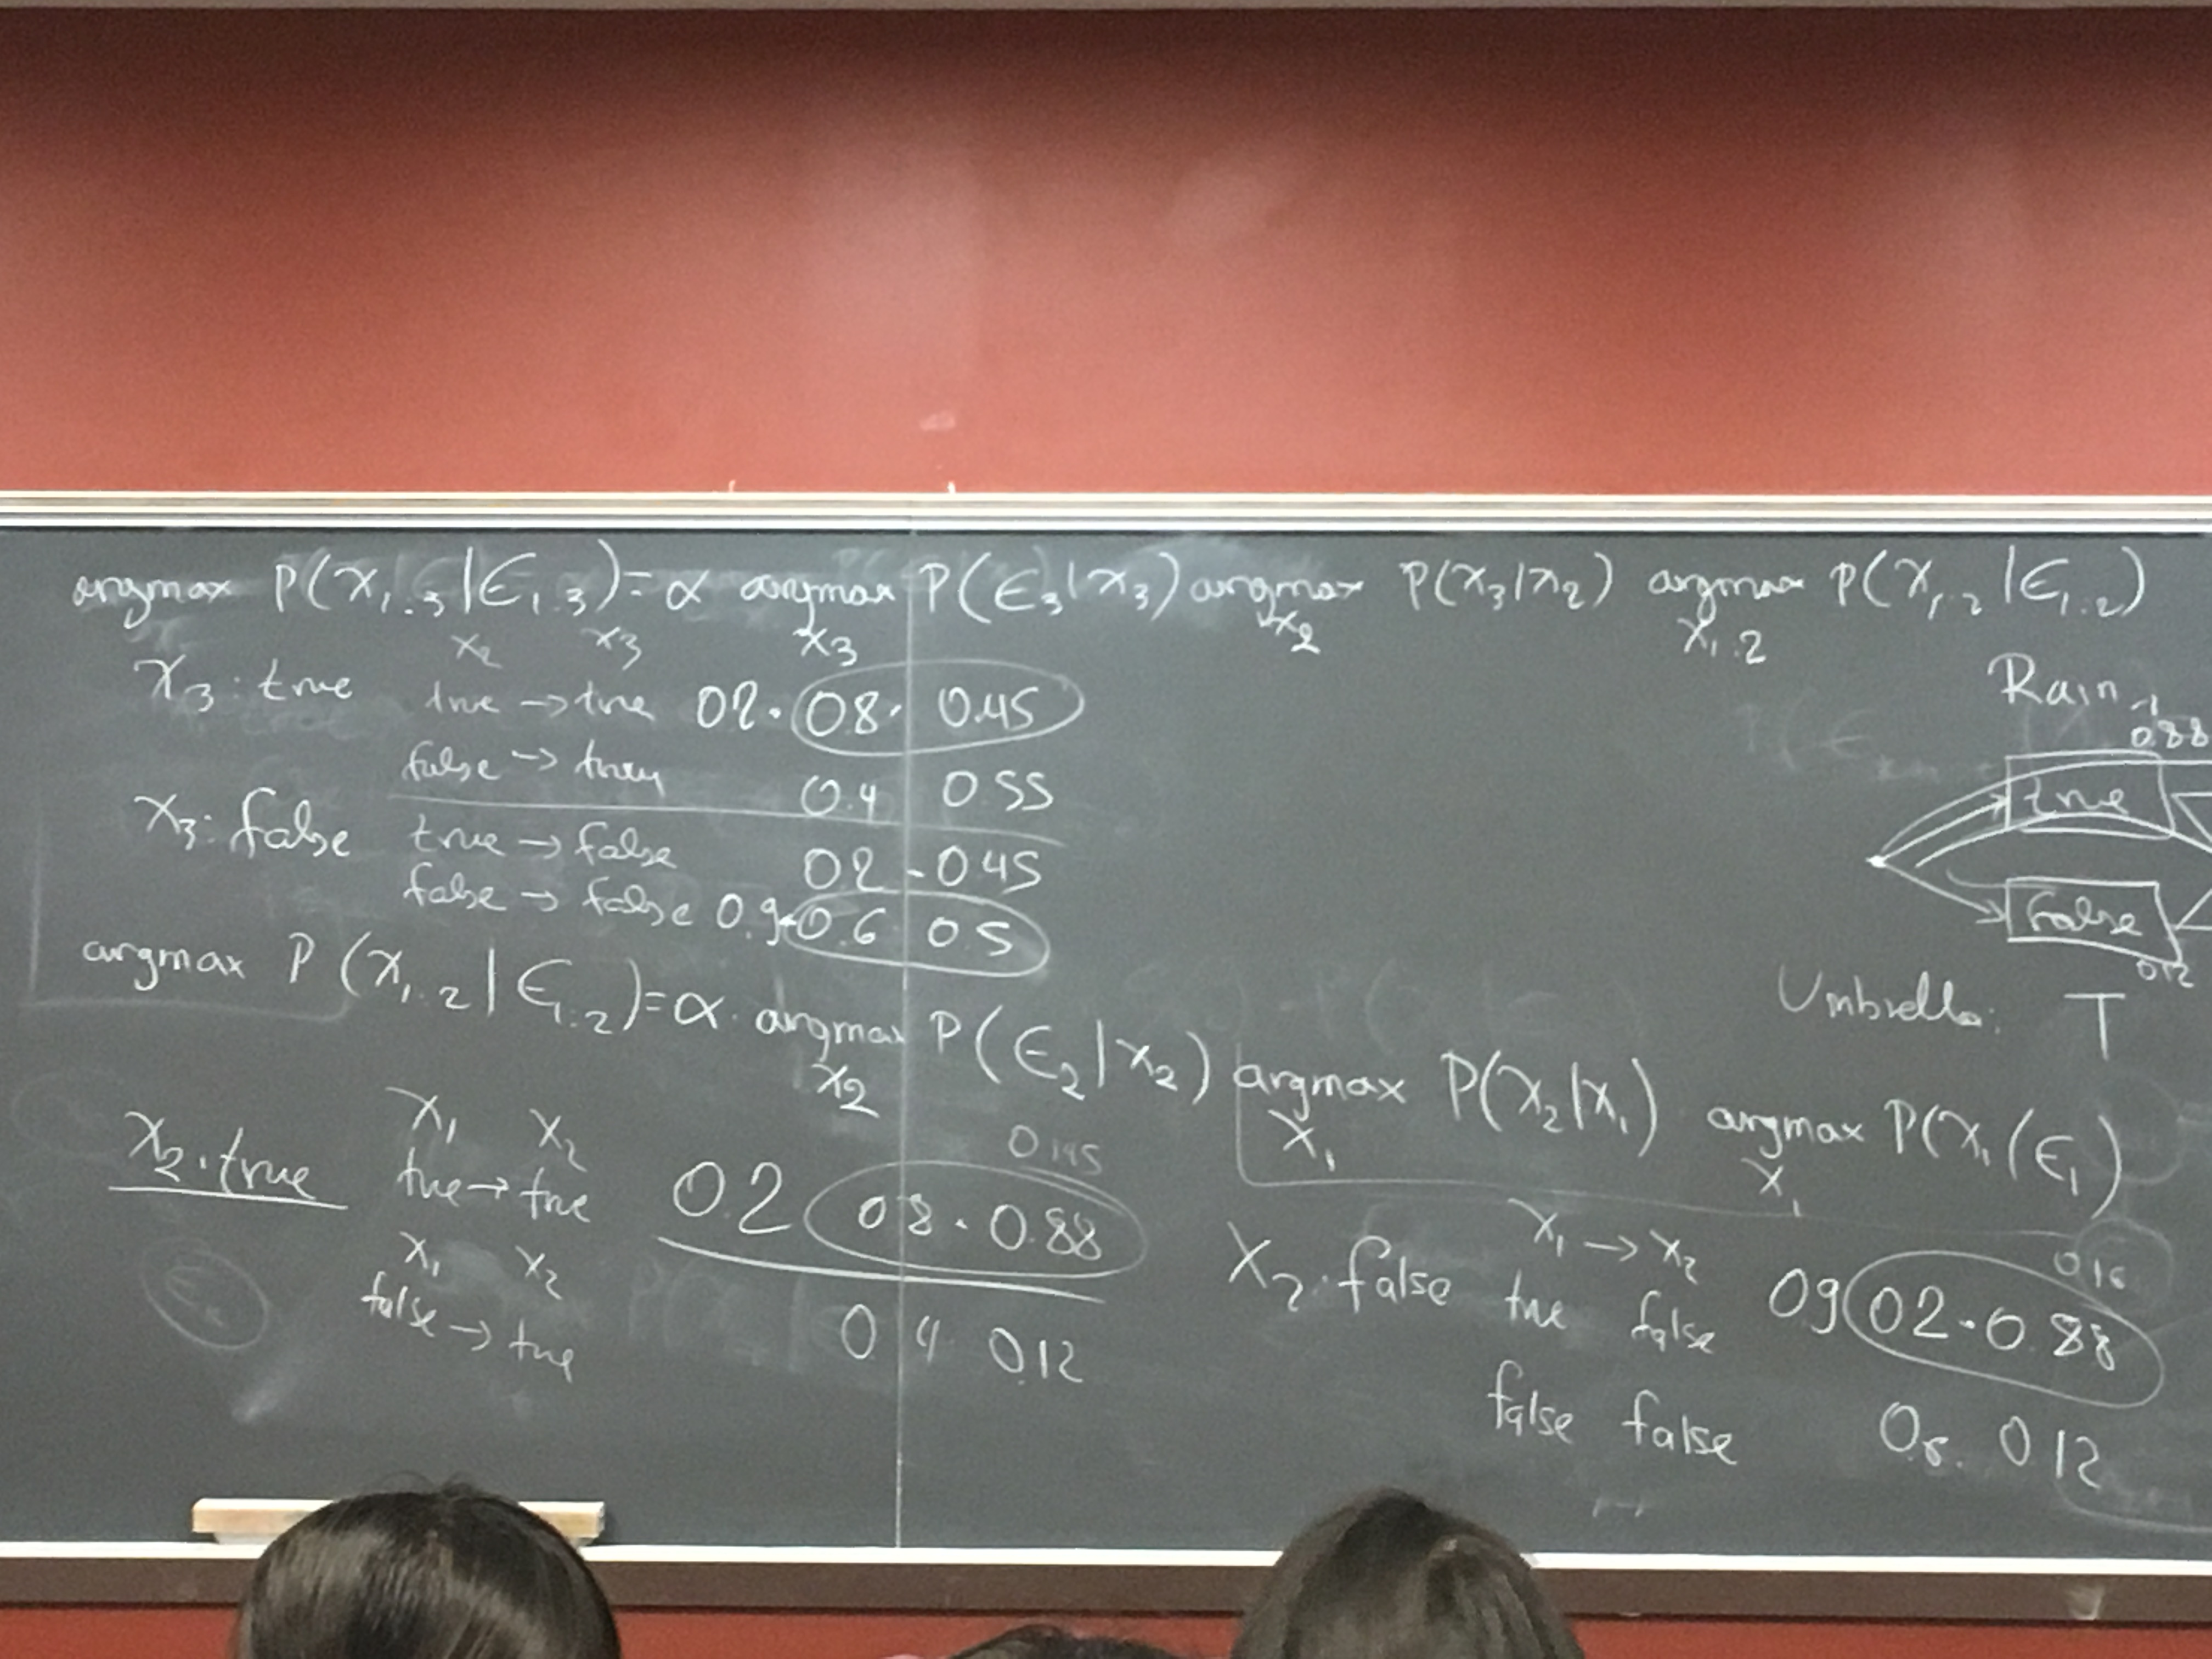 argmax P(x₁:₃|ϵ₁:₃)=α argmax P(ϵ₃|x₃) argmax P(x₃|x₂) argmax P(x₁:₂|ϵ₁:₂)
x₂ x₃ x₃ x₂ x₁:₂
x₃: true true → true 0.2 · 0.8 · 0.45
false → true 0.4 0.55
x₃: false true → false 0.2 · 0.45
false → false 0.9 · 0.6 0.5
Rain₋₁
0.88
true
False
0.12
Umbrella: T
argmax P(x₁:₂|ϵ₁:₂)=α· argmax P(ϵ₂|x₂) argmax P(x₂|x₁) argmax P(x₁|ϵ₁)
x₂ x₁ x₁
x₂: true x₁ x₂
true → true 0.2 0.8 · 0.88
x₁ x₂
false → true 0.4 0.12
x₂: false x₁ → x₂ 0.16
true false 0.9 0.2 · 0.88
false false 0.12